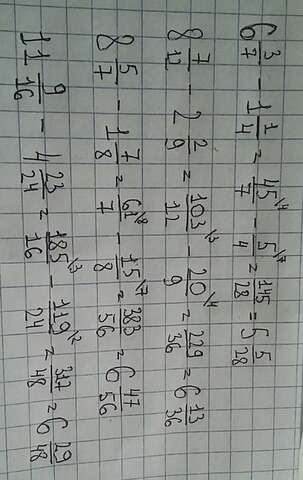 6 3/7 - 1 1/4 = 45/7 ⁄4 - 5/4 ⁄7 = 145/28 = 5 5/28
8 7/12 - 2 2/9 = 103/12 ⁄3 - 20/9 ⁄4 = 229/36 = 6 13/36
8 5/7 - 1 7/8 = 61/7 ⁄8 - 15/8 ⁄7 = 383/56 = 6 47/56
11 9/16 - 4 23/24 = 185/16 ⁄3 - 119/24 ⁄2 = 317/48 = 6 29/48